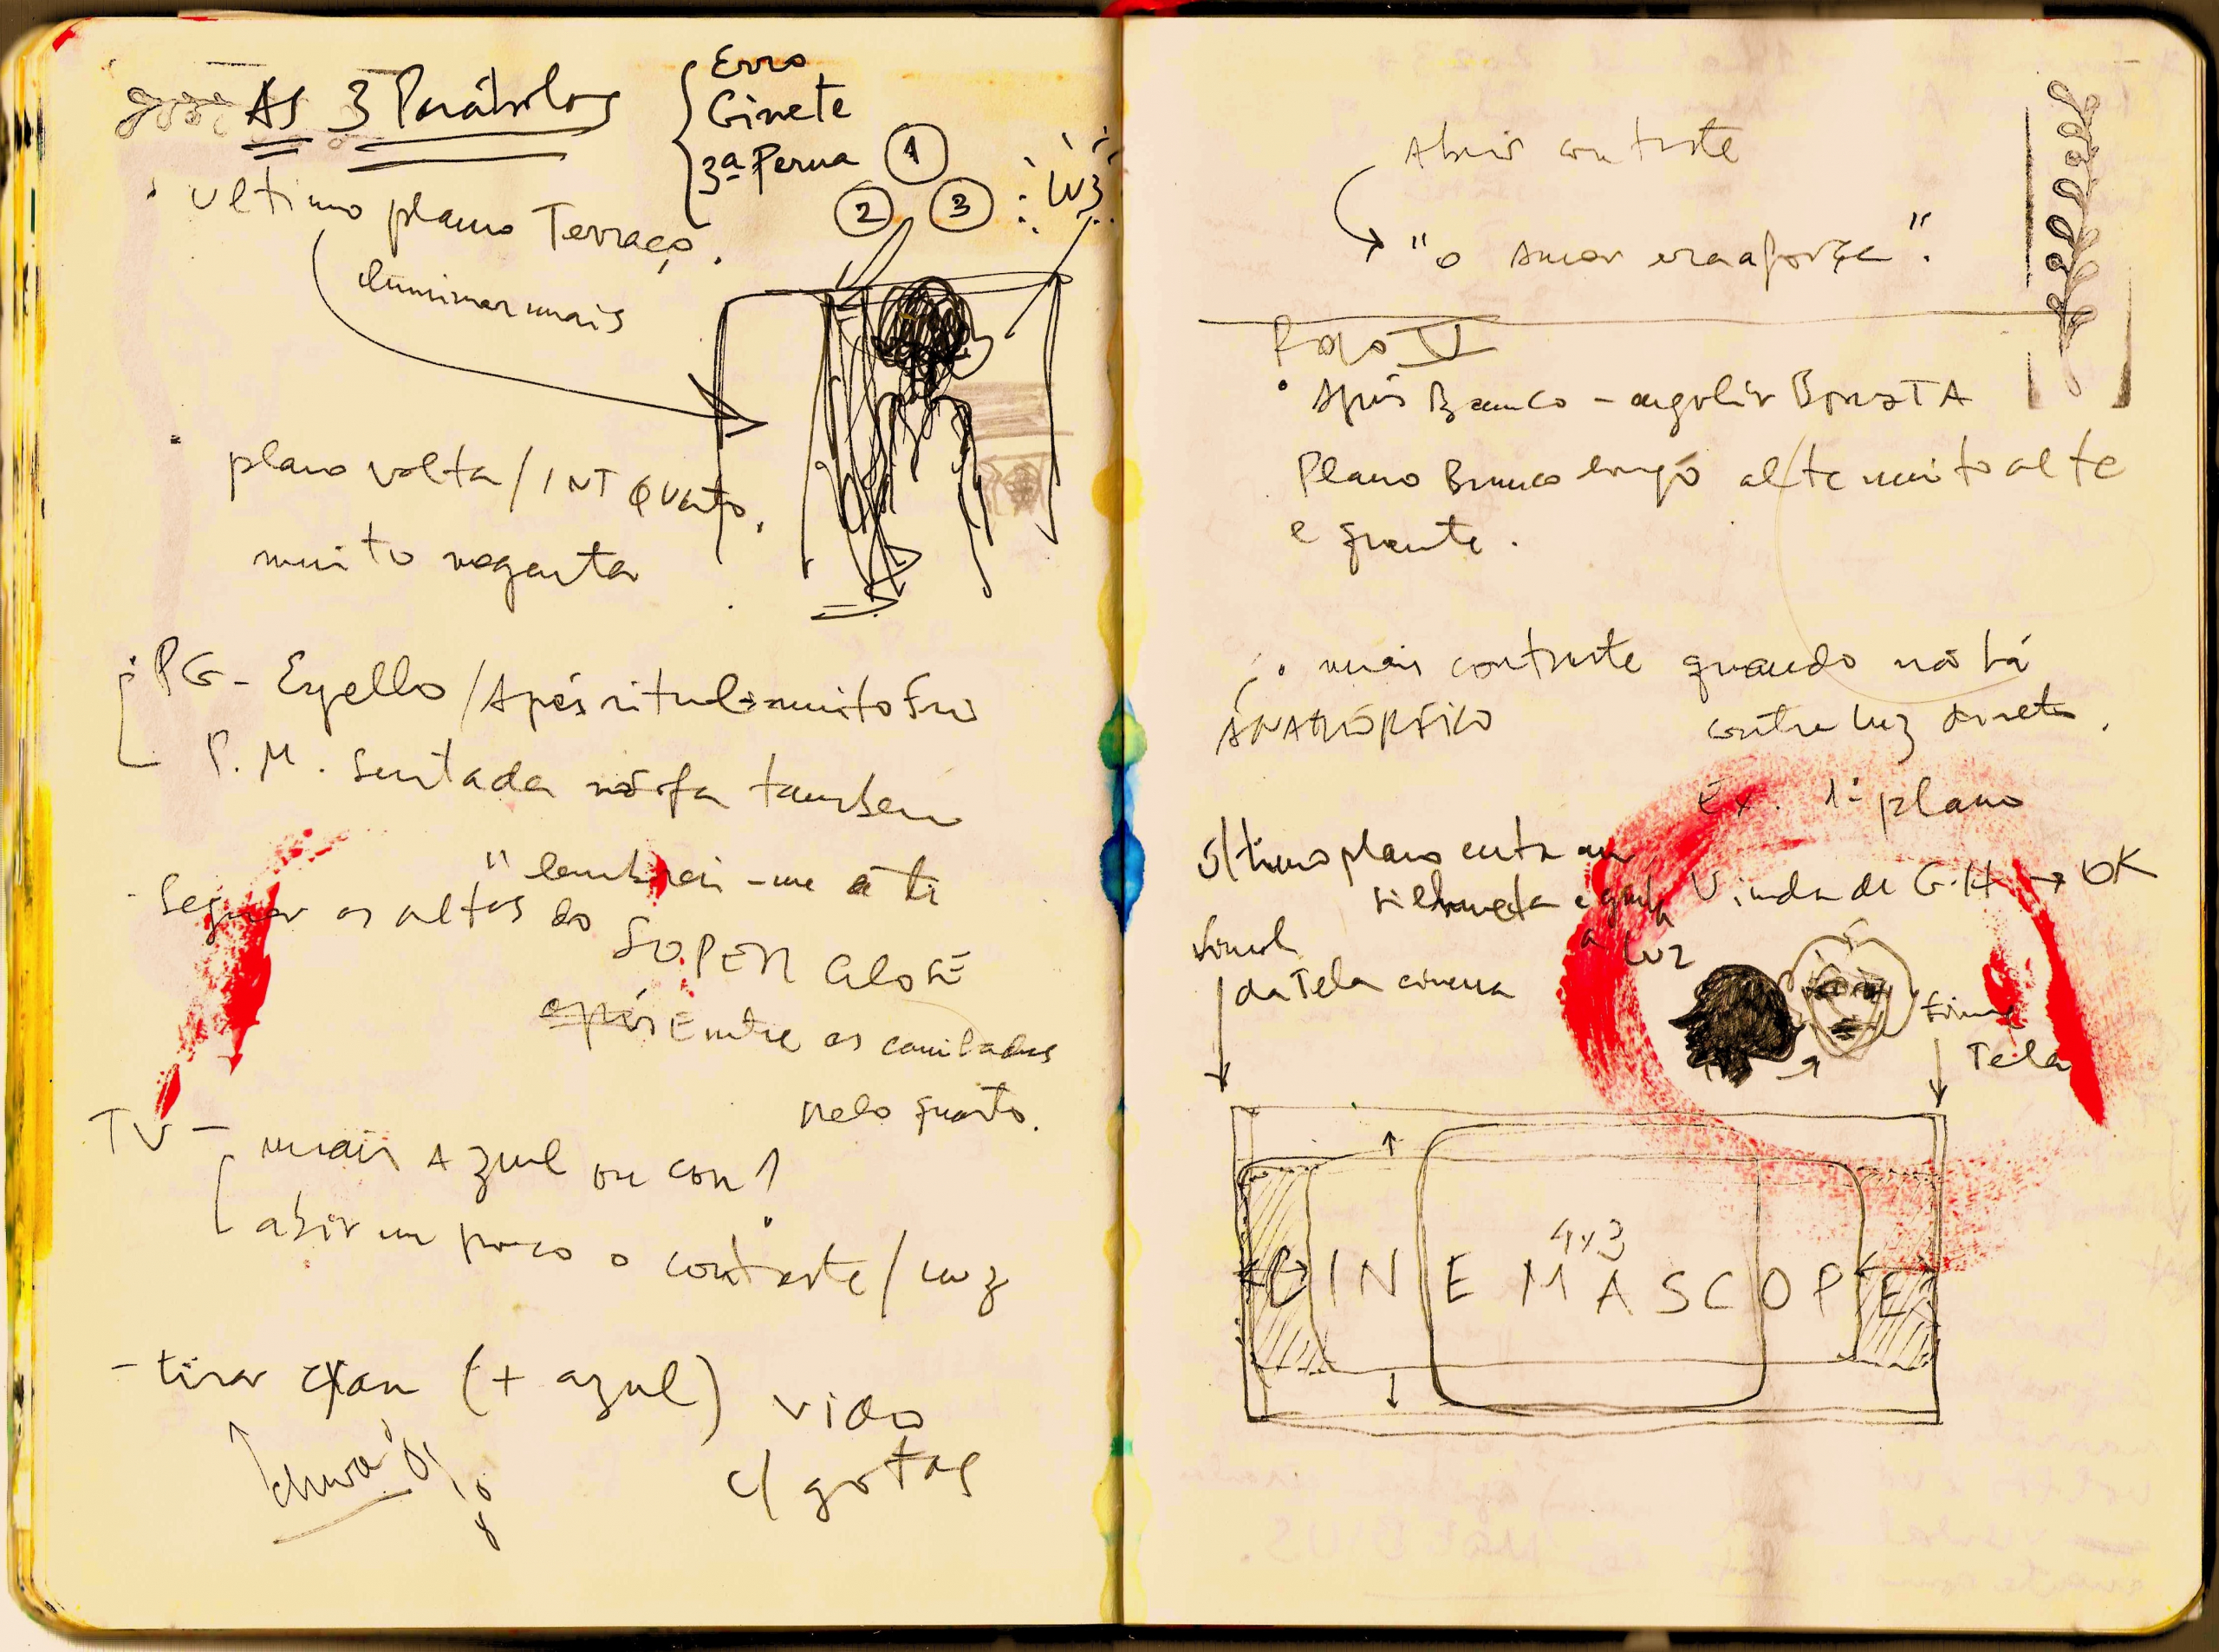 As 3 Parábolas
Erro
Ginete
3ª Perna
1
2 3 LUZ
Ultimo plano Terraço.
iluminar mais
plano volta / INT Quarto.
muito magenta
PG - Espelho / Após ritual muito frio
P.M. Sentada sofá também
- Segurar os altos do
"lembrei-me de ti
SUPER CLOSE
após Entre as caminhadas
pelo quarto.
TV - mais azul ou cor?
abrir um pouco o contraste / luz
- tirar cyan (+ azul) vidro
c/ gotas
chuva
Abrir contraste
"o Amor era a força".
Rolo V
Após Banco - engolir BARATA
Plano Branco longo alte muito alte
e quente.
mais contraste quando não há
ANAMÓRFICO contra luz direta.
Ex. 1º plano
último plano entra em
silhueta e ganha Vinda de G.H → OK
a luz
final
da Tela cinema
final
Tela
4x3
CINEMASCOPE